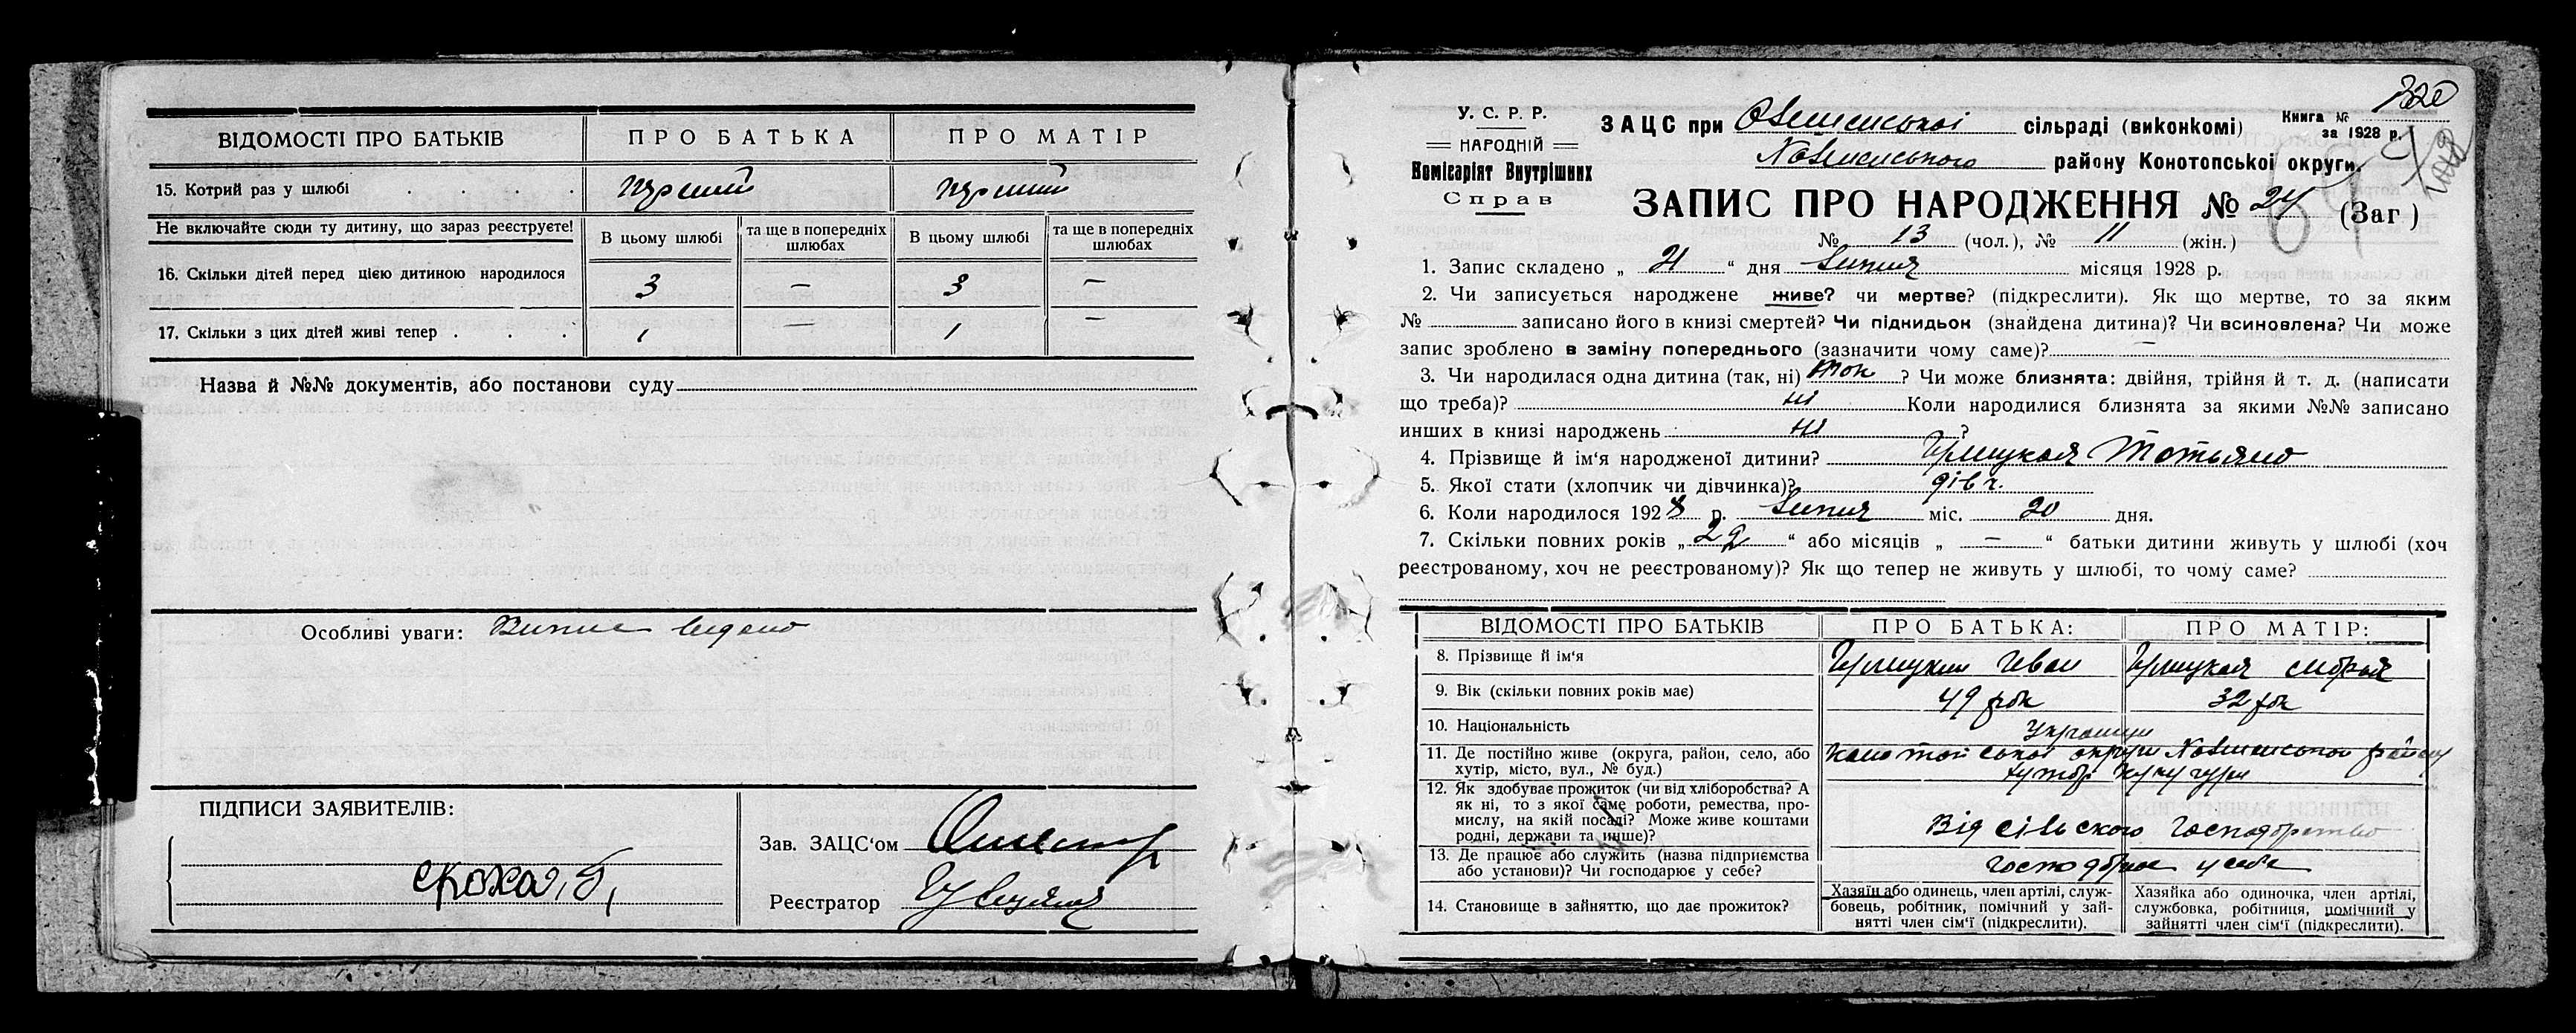 ВІДОМОСТІ ПРО БАТЬКІВ ПРО БАТЬКА ПРО МАТІР
15. Котрий раз у шлюбі перший перший
Не включайте сюди ту дитину, що зараз реєструєте! В цьому шлюбі та ще в попередніх шлюбах В цьому шлюбі та ще в попередніх шлюбах
16. Скільки дітей перед цією дитиною народилося 3 — 3 —
17. Скільки з цих дітей живі тепер 1 — 1 —
Назва й №№ документів, або постанови суду
Особливі уваги: видано
ПІДПИСИ ЗАЯВИТЕЛІВ:
Зав. ЗАЦС'ом
Реєстратор
320
У. С. Р. Р.
НАРОДНІЙ
Комісаріят Внутрішних
Справ
ЗАЦС при сільраді (виконкомі)
Книга №
за 1928 р.
району Конотопської округи.
ЗАПИС ПРО НАРОДЖЕННЯ № 24 (Заг)
№ 13 (чол.), № 11 (жін.)
1. Запис складено „ 21 “ дня липня місяця 1928 р.
2. Чи записується народжене живе? чи мертве? (підкреслити). Як що мертве, то за яким
№ записано його в книзі смертей? Чи піднидьок (знайдена дитина)? Чи всиновлена? Чи може
запис зроблено в заміну попереднього (зазначити чому саме)? —
3. Чи народилася одна дитина (так, ні) так ? Чи може близнята: двійня, трійня й т. д. (написати
що треба)? ні Коли народилися близнята за якими №№ записано
инших в книзі народжень ні ?
4. Прізвище й ім'я народженої дитини? Татьяна
5. Якої стати (хлопчик чи дівчинка)? дівч.
6. Коли народилося 1928 р. липня міс. 20 дня.
7. Скільки повних років „ “ або місяців „ — “ батьки дитини живуть у шлюбі (хоч
реєстрованому, хоч не реєстрованому)? Як що тепер не живуть у шлюбі, то чому саме?
ВІДОМОСТІ ПРО БАТЬКІВ ПРО БАТЬКА: ПРО МАТІР:
8. Прізвище й ім'я Іван
9. Вік (скільки повних років має) 49 рок 32 рок
10. Національність Українці
11. Де постійно живе (округа, район, село, або
хутір, місто, вул., № буд.) Конотопської округи району
хутор
12. Як здобуває прожиток (чи від хліборобства? А
як ні, то з якої саме роботи, ремества, про-
мислу, на якій посаді? Може живе коштами
родні, держави та инше)? Від сільского господарства
13. Де працює або служить (назва підприємства
або установи)? Чи господарює у себе? у себе
14. Становище в зайняттю, що дає прожиток?
Хазяїн або одинець, член артілі, служ-
бовець, робітник, помічний у зай-
нятті член сім'ї (підкреслити).
Хазяйка або одиночка, член артілі,
службовка, робітниця, помічний у
зайнятті член сім'ї (підкреслити).